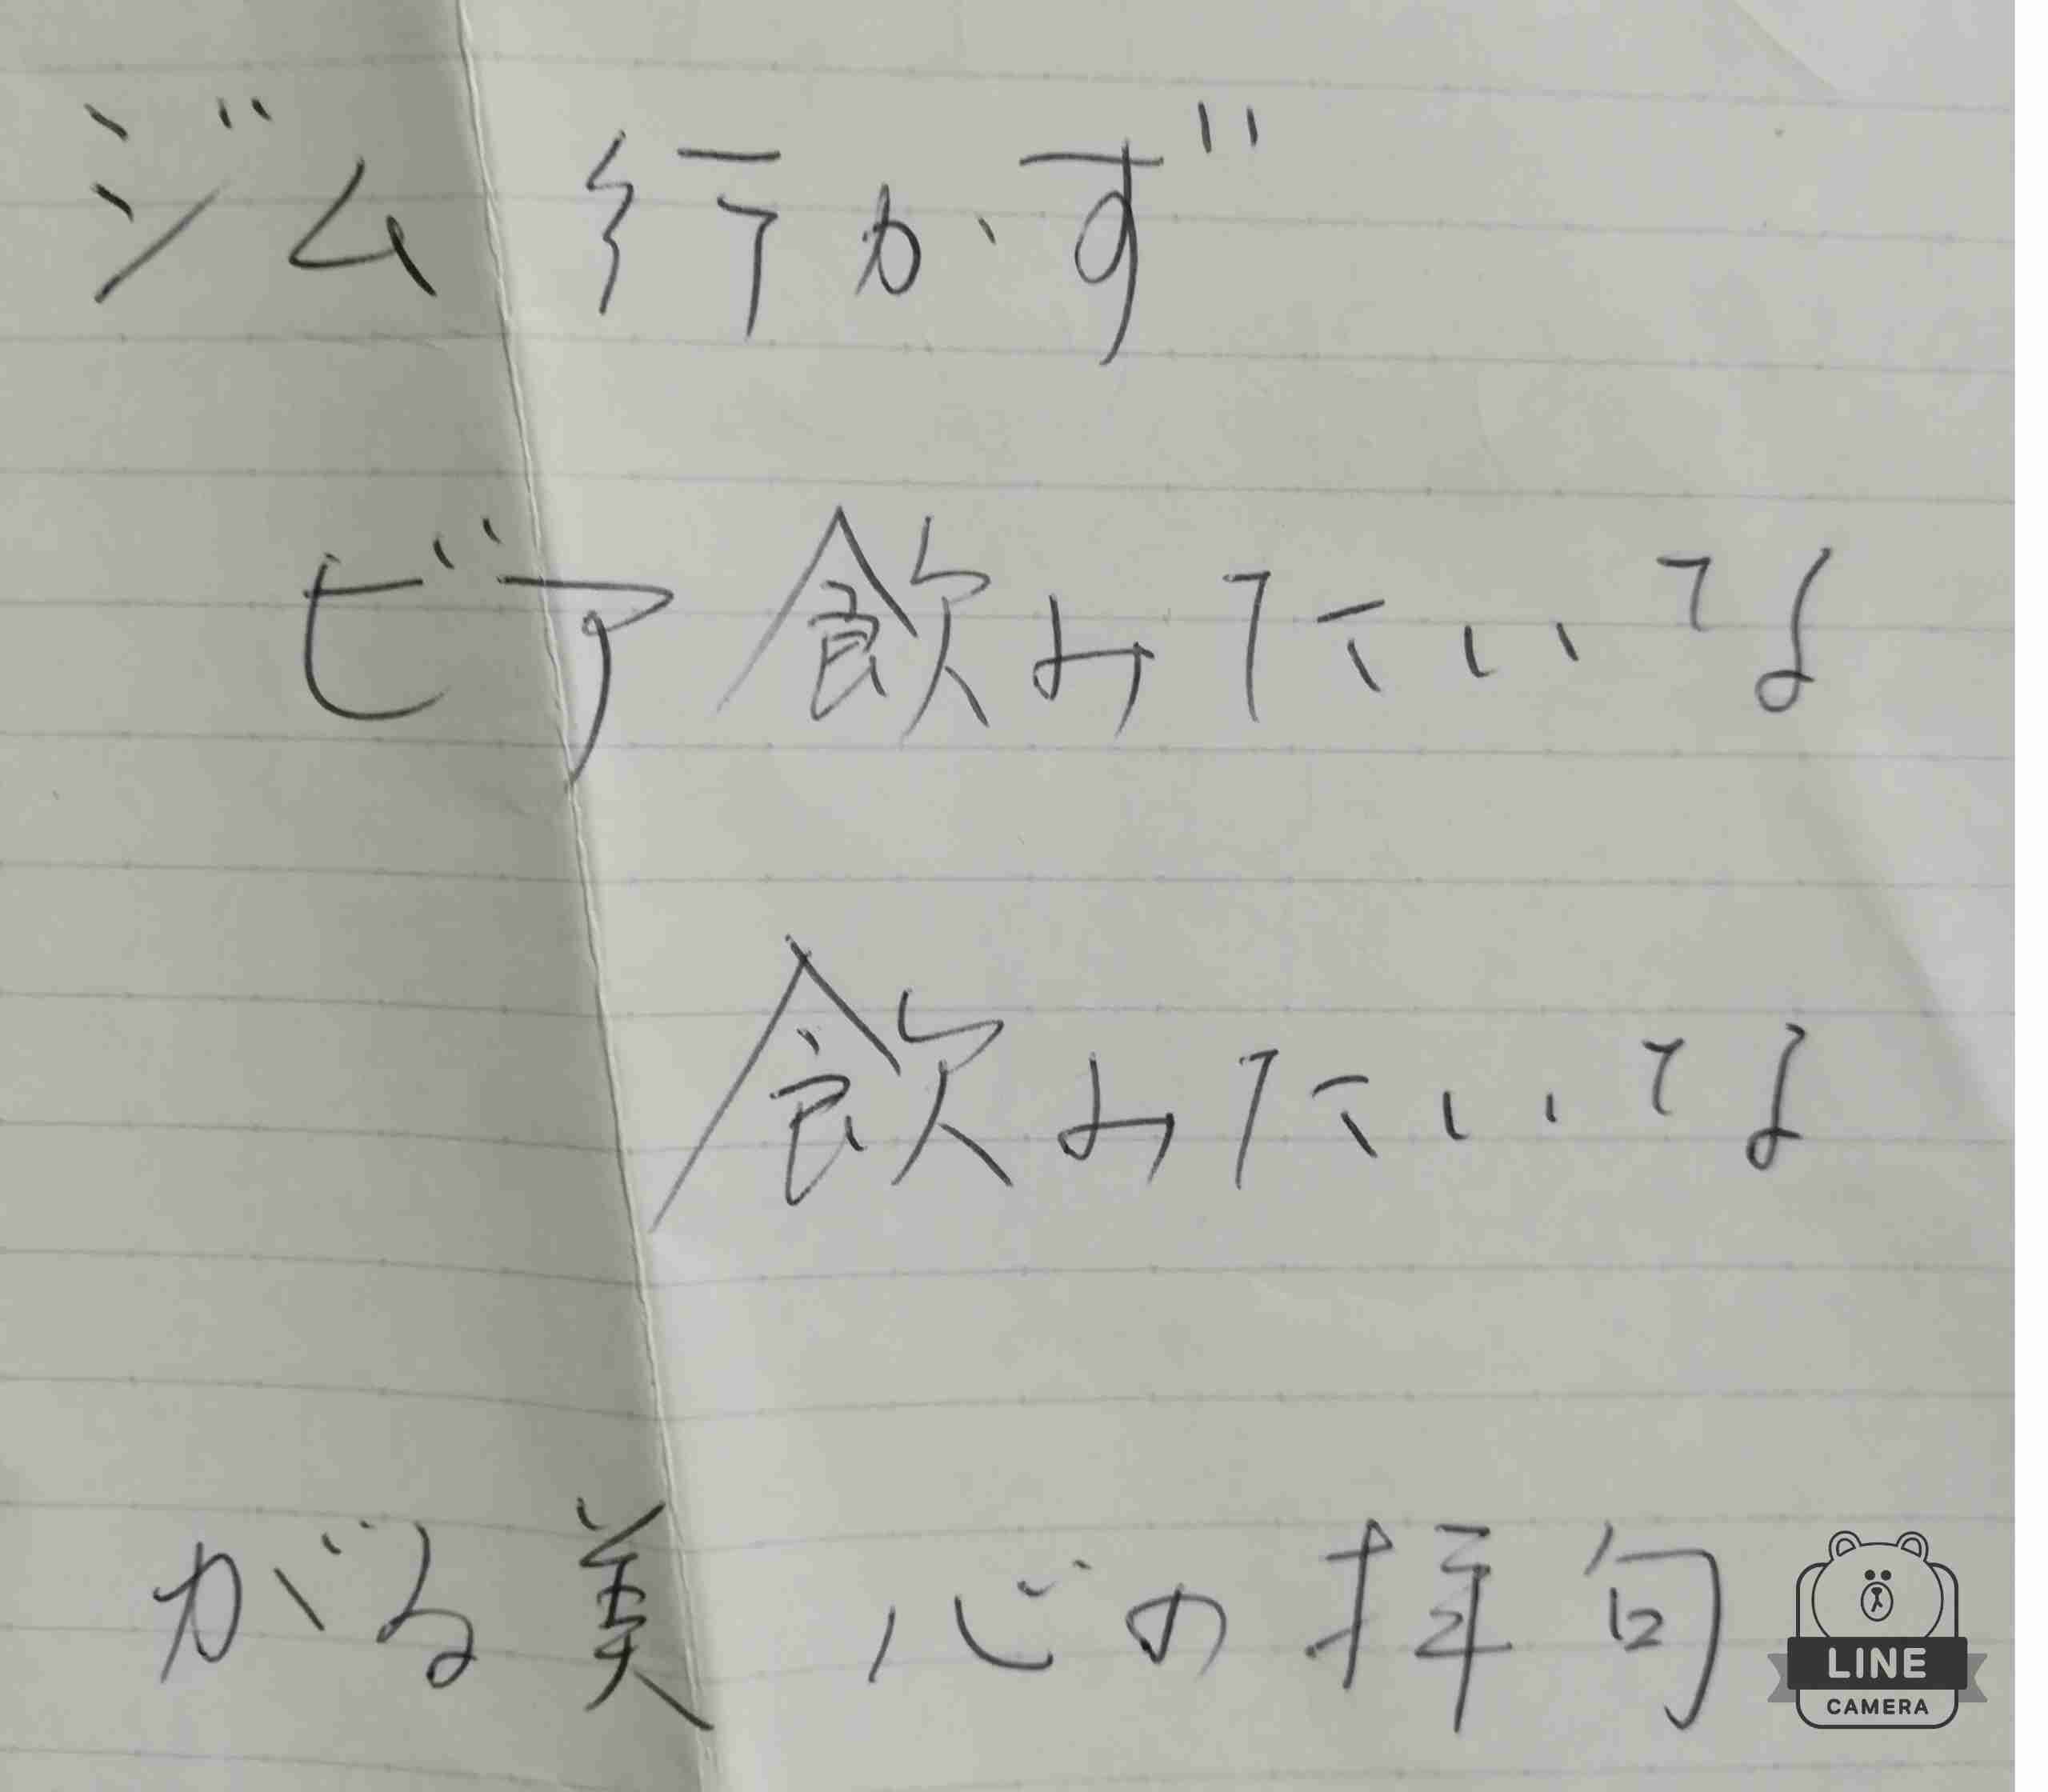 ジム行かず
ビア飲みたいな
飲みたいな
がる美 心の拝句
LINE
CAMERA